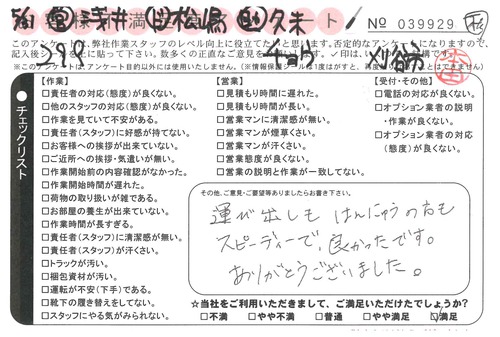 浅井 松嶋 久米
満 ート
No 039929
このアンケートは、弊社作業スタッフのレベル向上に役立てたいと思います。否定的なアンケートになりますので、
チェックリスト
【作業】
□責任者の対応(態度)が良くない。
□他のスタッフの対応(態度)が良くない。
□作業を見ていて不安がある。
□責任者(スタッフ)に好感が持てない。
□お客様への挨拶が出来ていない。
□ご近所への挨拶・気遣いが無い。
□作業開始前の内容確認がなかった。
□作業開始時間が遅れた。
□荷物の取り扱いが雑である。
□お部屋の養生が出来ていない。
□作業時間が長すぎる。
□責任者(スタッフ)に清潔感が無い。
□責任者(スタッフ)が汗くさい。
□トラックが汚い。
□梱包資材が汚い。
□運転が不安(下手)である。
□靴下の履き替えをしてない。
□スタッフにやる気がみられない。
【営業】
□見積もり時間に遅れた。
□見積もり時間が長い。
□営業マンに清潔感が無い。
□営業マンが煙草くさい。
□営業マンが汗くさい。
□営業態度が良くない。
□営業の説明と作業が一致してない。
【受付・その他】
□電話の対応が良くない。
□オプション業者の説明
・作業が良くない。
□オプション業者の対応
(態度)が良くない。
その他、ご意見・ご要望等ありましたらお書き下さい。
運び出しも はんにゅうの方も
スピーディーで、良かったです。
ありがとうございました。
☆当社をご利用いただきまして、ご満足いただけたでしょうか?
□不満 □やや不満 □普通 □やや満足 ☑満足